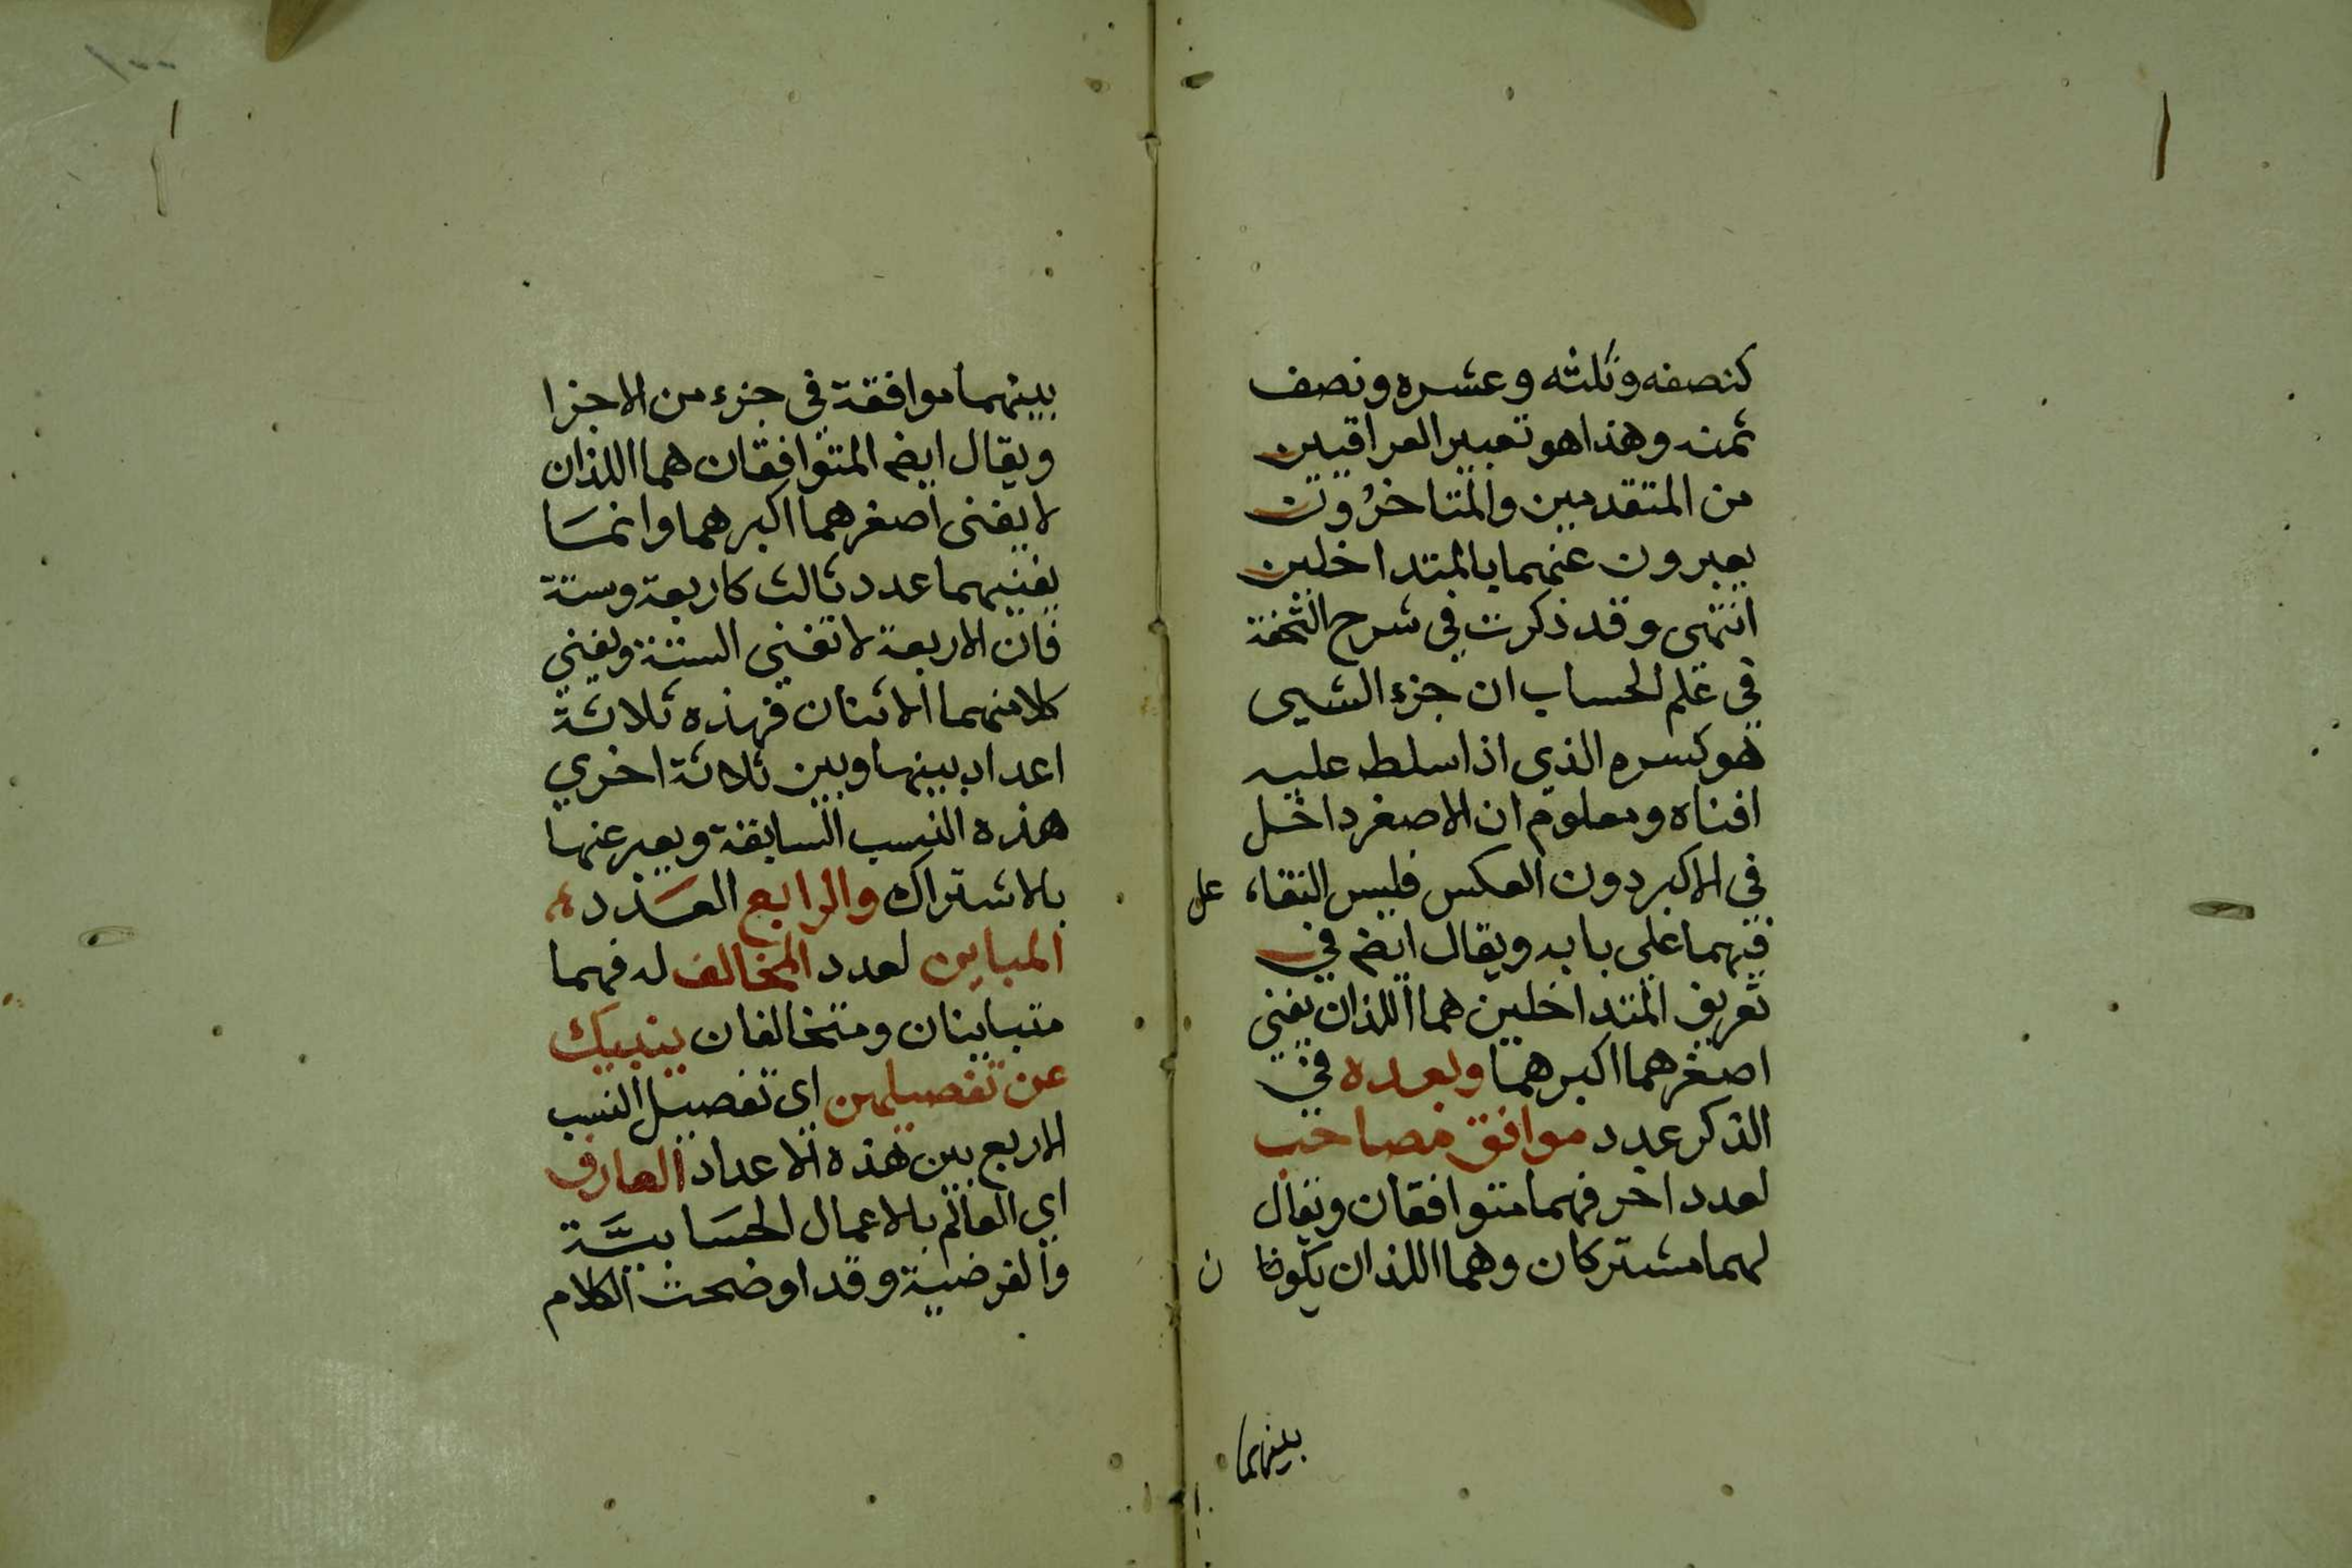 كنصفه وثلثه وعشره ونصف
ثمنه وهذا هو تعبير العراقيين
من المتقدمين والمتاخرون
يعبرون عنهما بالمتداخلين
انتهى وقد ذكرت في شرح التحفة
في علم الحساب ان جزء الشيى
هو كسره الذي اذا سلط عليه
افناه ومعلوم ان الاصغر داخل
في الاكبر دون العكس فليس التفاعل
فيهما على بابه ويقال ايضم في
تعريف المتداخلين هما اللذان يفني
اصغرهما اكبرهما وبعده في
الذكر عدد موافق مصاحب
لعدد اخر فهما متوافقان ويقال
لهما مشتركان وهما اللذان يكونان
بينهما
١٠٠
بينهما موافقة في جزء من الاجزا
ويقال ايضم المتوافقان هما اللذان
لا يفنى اصغرهما اكبرهما وانما
يفنيهما عدد ثالث كاربعة وستة
فان الاربعة لا تفني الستة ويفني
كلا منهما الاثنان فهذه ثلاثة
اعداد بينها وبين ثلاثة اخري
هذه النسب السابقة ويعبر عنها
بالاشتراك والرابع العدد
المباين لعدد المخالف له فهما
متباينان ومتخالفان ينبيك
عن تفصيلهن اي تفصيل النسب
الاربع بين هذه الاعداد العارف
اي العالم بالاعمال الحسابية
والفرضية وقد اوضحت الكلام